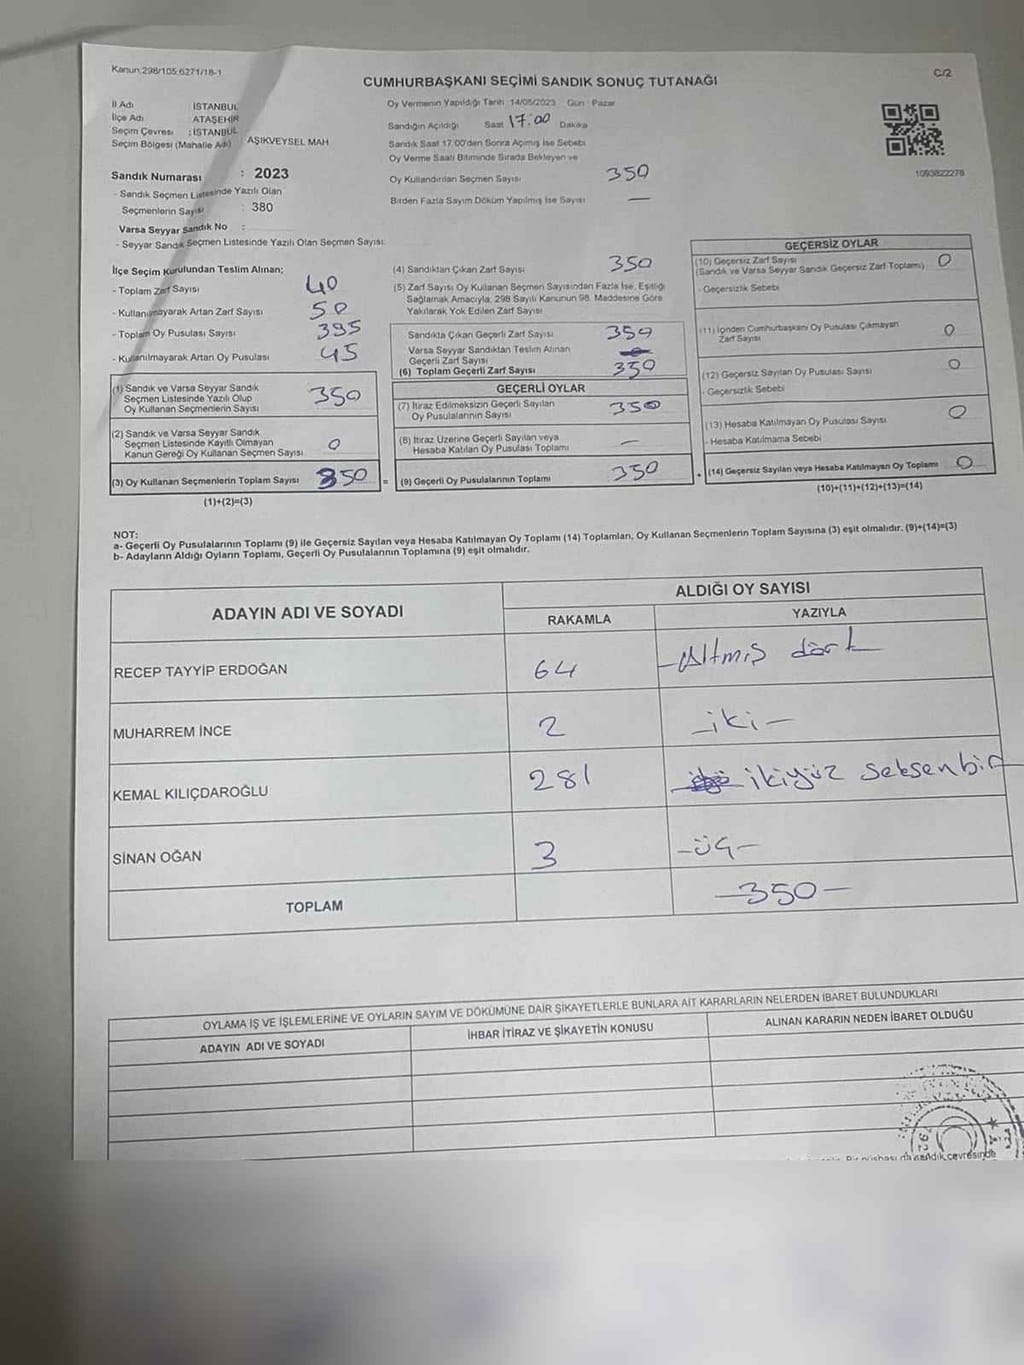 Kanun:298/105;6271/18-1
C/2
CUMHURBAŞKANI SEÇİMİ SANDIK SONUÇ TUTANAĞI
İl Adı İSTANBUL
İlçe Adı ATAŞEHİR
Seçim Çevresi :İSTANBUL
Seçim Bölgesi (Mahalle Adı) AŞIKVEYSEL MAH
Sandık Numarası : 2023
- Sandık Seçmen Listesinde Yazılı Olan
Seçmenlerin Sayısı : 380
Varsa Seyyar Sandık No :
- Seyyar Sandık Seçmen Listesinde Yazılı Olan Seçmen Sayısı:
Oy Vermenin Yapıldığı Tarih 14/05/2023 Gün : Pazar
Sandığın Açıldığı Saat 17:00 Dakika
Sandık Saat 17.00'den Sonra Açılmış İse Sebebi
Oy Verme Saati Bitiminde Sırada Bekleyen ve
Oy Kullandırılan Seçmen Sayısı 350
Birden Fazla Sayım Döküm Yapılmış İse Sayısı —
1093822278
İlçe Seçim Kurulundan Teslim Alınan;
- Toplam Zarf Sayısı 40
- Kullanılmayarak Artan Zarf Sayısı 50
- Toplam Oy Pusulası Sayısı 395
- Kullanılmayarak Artan Oy Pusulası 45
(1) Sandık ve Varsa Seyyar Sandık
Seçmen Listesinde Yazılı Olup
Oy Kullanan Seçmenlerin Sayısı 350
(2) Sandık ve Varsa Seyyar Sandık
Seçmen Listesinde Kayıtlı Olmayan
Kanun Gereği Oy Kullanan Seçmen Sayısı 0
(3) Oy Kullanan Seçmenlerin Toplam Sayısı 350 =
(1)+(2)=(3)
(4) Sandıktan Çıkan Zarf Sayısı 350
(5) Zarf Sayısı Oy Kullanan Seçmen Sayısından Fazla İse, Eşitliği
Sağlamak Amacıyla; 298 Sayılı Kanunun 98. Maddesine Göre
Yakılarak Yok Edilen Zarf Sayısı
Sandıkta Çıkan Geçerli Zarf Sayısı 350
Varsa Seyyar Sandıktan Teslim Alınan
Geçerli Zarf Sayısı
(6) Toplam Geçerli Zarf Sayısı 350
GEÇERLİ OYLAR
(7) İtiraz Edilmeksizin Geçerli Sayılan
Oy Pusulalarının Sayısı 350
(8) İtiraz Üzerine Geçerli Sayılan veya
Hesaba Katılan Oy Pusulası Toplamı —
(9) Geçerli Oy Pusulalarının Toplamı 350 +
GEÇERSİZ OYLAR
(10) Geçersiz Zarf Sayısı 0
(Sandık ve Varsa Seyyar Sandık Geçersiz Zarf Toplamı)
- Geçersizlik Sebebi
(11) İçinden Cumhurbaşkanı Oy Pusulası Çıkmayan
Zarf Sayısı 0
(12) Geçersiz Sayılan Oy Pusulası Sayısı 0
- Geçersizlik Sebebi
(13) Hesaba Katılmayan Oy Pusulası Sayısı 0
- Hesaba Katılmama Sebebi
(14) Geçersiz Sayılan veya Hesaba Katılmayan Oy Toplamı 0
(10)+(11)+(12)+(13)=(14)
NOT:
a- Geçerli Oy Pusulalarının Toplamı (9) ile Geçersiz Sayılan veya Hesaba Katılmayan Oy Toplamı (14) Toplamları, Oy Kullanan Seçmenlerin Toplam Sayısına (3) eşit olmalıdır. (9)+(14)=(3)
b- Adayların Aldığı Oyların Toplamı, Geçerli Oy Pusulalarının Toplamına (9) eşit olmalıdır.
ADAYIN ADI VE SOYADI
ALDIĞI OY SAYISI
RAKAMLA YAZIYLA
RECEP TAYYİP ERDOĞAN 64 -Altmış dört-
MUHARREM İNCE 2 -iki-
KEMAL KILIÇDAROĞLU 281 ikiyüz seksenbir
SİNAN OĞAN 3 -üç-
TOPLAM -350-
OYLAMA İŞ VE İŞLEMLERİNE VE OYLARIN SAYIM VE DÖKÜMÜNE DAİR ŞİKAYETLERLE BUNLARA AİT KARARLARIN NELERDEN İBARET BULUNDUKLARI
ADAYIN ADI VE SOYADI İHBAR İTİRAZ VE ŞİKAYETİN KONUSU ALINAN KARARIN NEDEN İBARET OLDUĞU